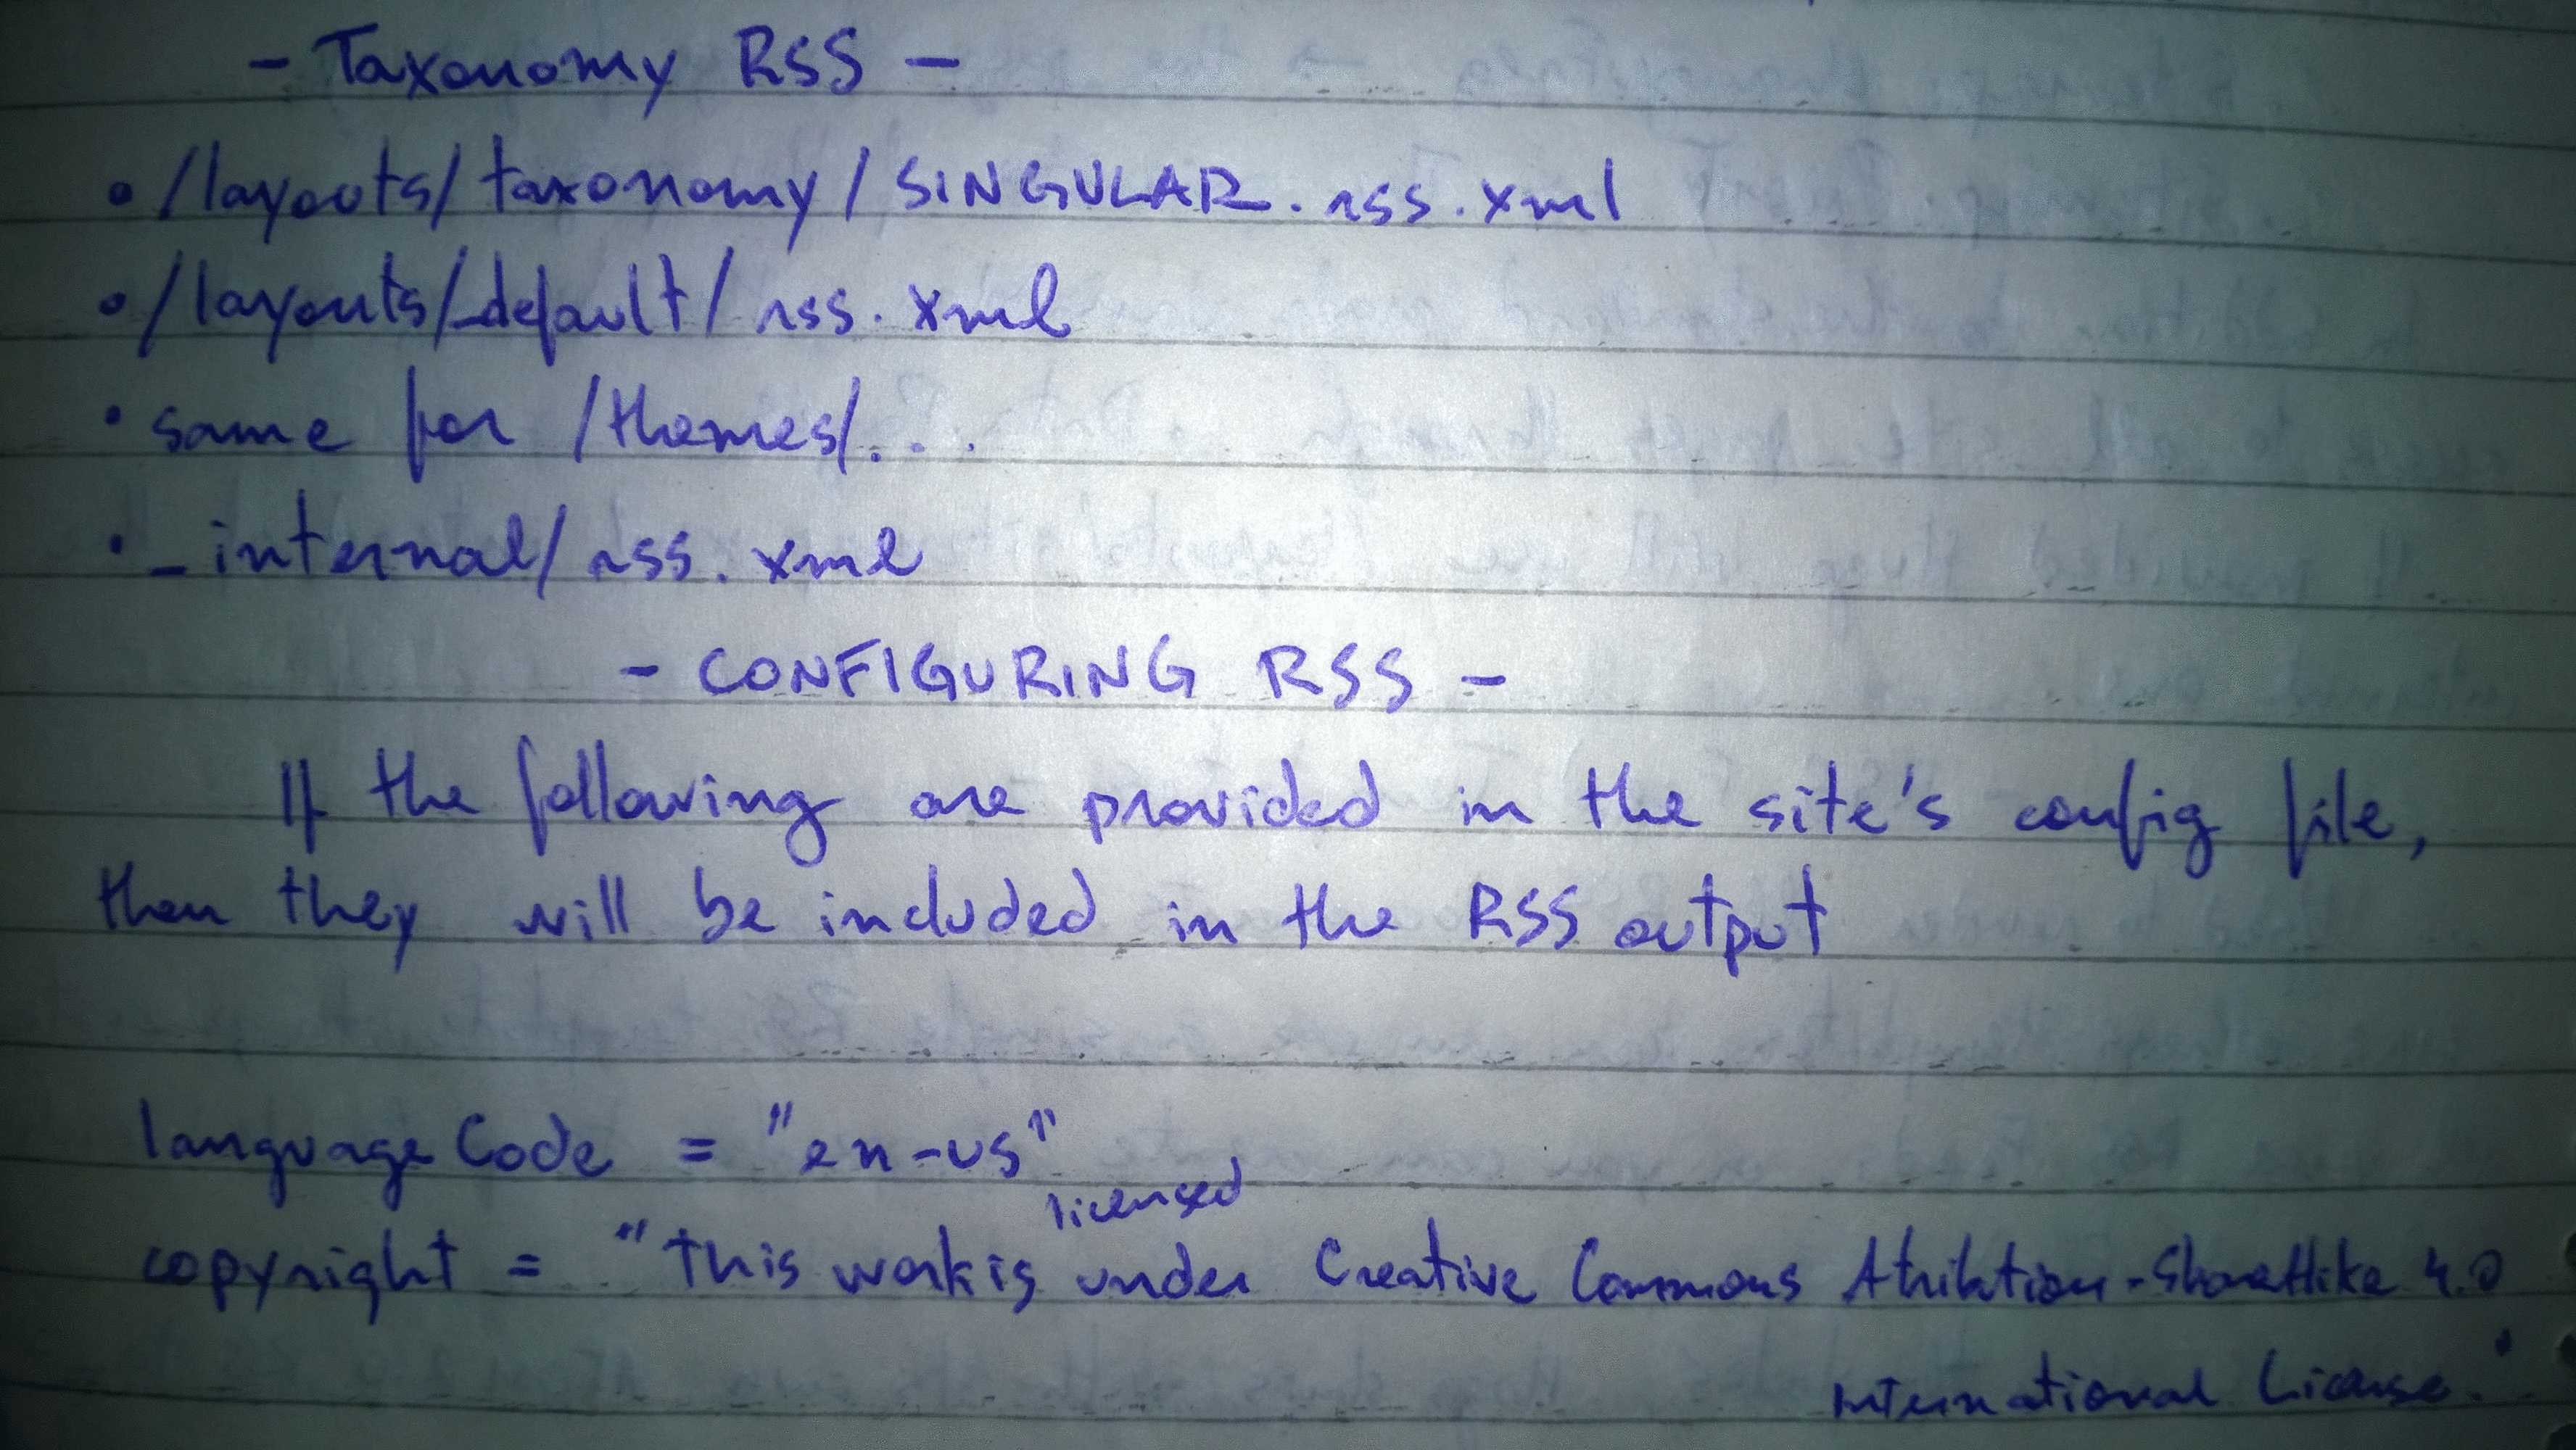 - Taxonomy RSS -
• /layouts/taxonomy/SINGULAR.rss.xml
• /layouts/_default/rss.xml
• same for /themes/...
• _internal/rss.xml
- CONFIGURING RSS -
If the following are provided in the site's config file,
then they will be included in the RSS output
languageCode = "en-us"
licensed
copyright = "This work is under Creative Commons Atribution-ShareAlike 4.0
International License."